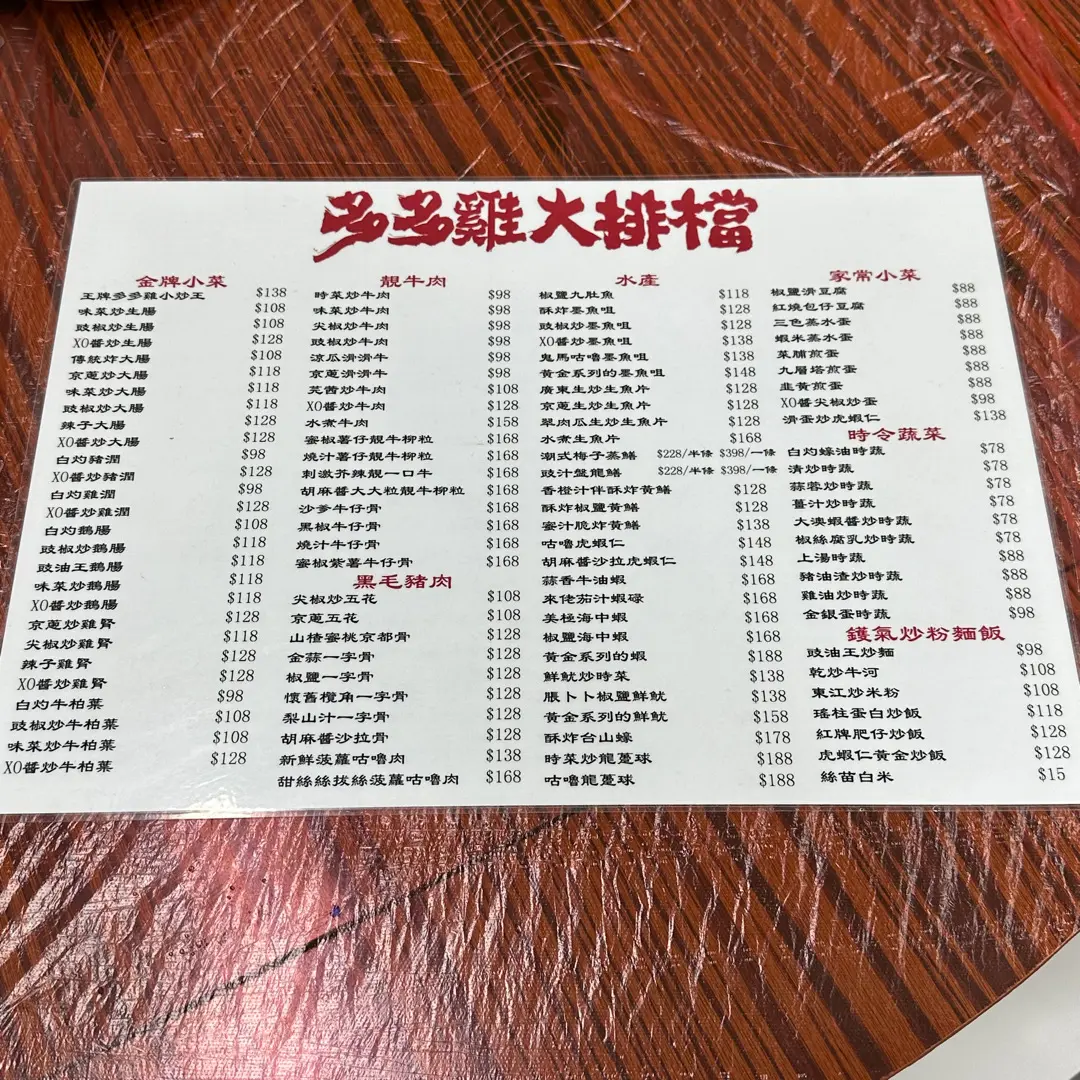 多多雞大排檔
金牌小菜
王牌多多雞小炒王 $138
味菜炒生腸 $108
豉椒炒生腸 $108
XO醬炒生腸 $128
傳統炸大腸 $108
京蔥炒大腸 $118
味菜炒大腸 $118
豉椒炒大腸 $118
辣子大腸 $128
XO醬炒大腸 $128
白灼豬潤 $98
XO醬炒豬潤 $128
白灼雞潤 $98
XO醬炒雞潤 $128
白灼鵝腸 $108
豉椒炒鵝腸 $118
豉油王鵝腸 $118
味菜炒鵝腸 $118
XO醬炒鵝腸 $118
京蔥炒雞腎 $128
尖椒炒雞腎 $118
辣子雞腎 $128
XO醬炒雞腎 $128
白灼牛柏葉 $98
豉椒炒牛柏葉 $108
味菜炒牛柏葉 $108
XO醬炒牛柏葉 $128
靚牛肉
時菜炒牛肉 $98
味菜炒牛肉 $98
尖椒炒牛肉 $98
豉椒炒牛肉 $98
涼瓜滑滑牛 $98
京蔥滑滑牛 $98
芫茜炒牛肉 $108
XO醬炒牛肉 $128
水煮牛肉 $158
蜜椒薯仔靚牛柳粒 $168
燒汁薯仔靚牛柳粒 $168
刺激芥辣靚一口牛 $168
胡麻醬大大粒靚牛柳粒 $168
沙爹牛仔骨 $168
黑椒牛仔骨 $168
燒汁牛仔骨 $168
蜜椒紫薯牛仔骨 $168
黑毛豬肉
尖椒炒五花 $108
京蔥五花 $108
山楂蜜桃京都骨 $128
金蒜一字骨 $128
椒鹽一字骨 $128
懷舊欖角一字骨 $128
梨山汁一字骨 $128
胡麻醬沙拉骨 $128
新鮮菠蘿咕嚕肉 $138
甜絲絲拔絲菠蘿咕嚕肉 $168
水產
椒鹽九肚魚 $118
酥炸墨魚咀 $128
豉椒炒墨魚咀 $128
XO醬炒墨魚咀 $138
鬼馬咕嚕墨魚咀 $138
黃金系列的墨魚咀 $148
廣東生炒生魚片 $128
京蔥生炒生魚片 $128
翠肉瓜生炒生魚片 $128
水煮生魚片 $168
潮式梅子蒸鱔 $228/半條 $398/一條
豉汁盤龍鱔 $228/半條 $398/一條
香橙汁伴酥炸黃鱔 $128
酥炸椒鹽黃鱔 $128
蜜汁脆炸黃鱔 $138
咕嚕虎蝦仁 $148
胡麻醬沙拉虎蝦仁 $148
蒜香牛油蝦 $168
來佬茄汁蝦碌 $168
美極海中蝦 $168
椒鹽海中蝦 $168
黃金系列的蝦 $188
鮮魷炒時菜 $138
脹卜卜椒鹽鮮魷 $138
黃金系列的鮮魷 $158
酥炸台山蠔 $178
時菜炒龍躉球 $188
咕嚕龍躉球 $188
家常小菜
椒鹽滑豆腐 $88
紅燒包仔豆腐 $88
三色蒸水蛋 $88
蝦米蒸水蛋 $88
菜脯煎蛋 $88
九層塔煎蛋 $88
韭黃煎蛋 $88
XO醬尖椒炒蛋 $98
滑蛋炒虎蝦仁 $138
時令蔬菜
白灼蠔油時蔬 $78
清炒時蔬 $78
蒜蓉炒時蔬 $78
薑汁炒時蔬 $78
大澳蝦醬炒時蔬 $78
椒絲腐乳炒時蔬 $78
上湯時蔬 $88
豬油渣炒時蔬 $88
雞油炒時蔬 $88
金銀蛋時蔬 $98
鑊氣炒粉麵飯
豉油王炒麵 $98
乾炒牛河 $108
東江炒米粉 $108
瑤柱蛋白炒飯 $118
紅牌肥仔炒飯 $128
虎蝦仁黃金炒飯 $128
絲苗白米 $15